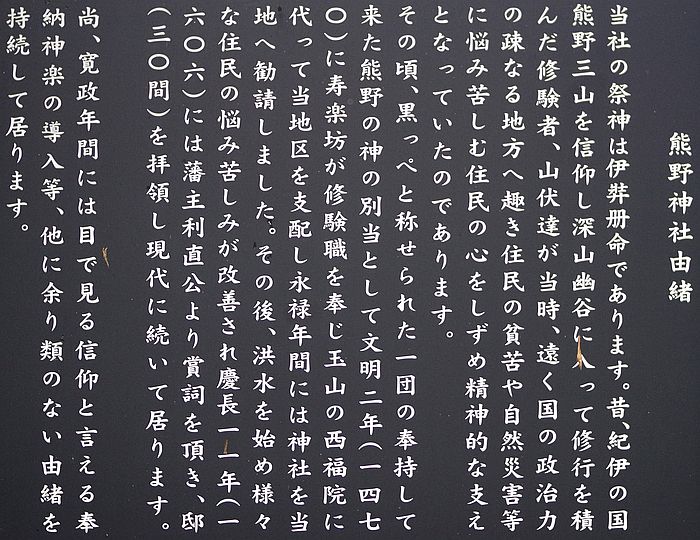 熊野神社由緒
当社の祭神は伊弉册命であります。昔、紀伊の国
熊野三山を信仰し深山幽谷に入って修行を積
んだ修験者、山伏達が当時、遠く国の政治力
の疎なる地方へ趣き住民の貧苦や自然災害等
に悩み苦しむ住民の心をしずめ精神的な支え
となっていたのであります。
その頃、黒っぺと称せられた一団の奉持して
来た熊野の神の別当として文明二年(一四七
〇)に寿楽坊が修験職を奉じ玉山の西福院に
代って当地区を支配し永禄年間には神社を当
地へ勧請しました。その後、洪水を始め様々
な住民の悩み苦しみが改善され慶長一一年(一
六〇六)には藩主利直公より賞詞を頂き、邸
(三〇間)を拝領し現代に続いて居ります。
尚、寛政年間には目で見る信仰と言える奉
納神楽の導入等、他に余り類のない由緒を
持続して居ります。